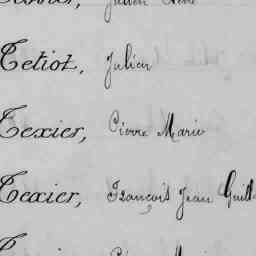 Julien René
Tetiot, Julien
Texier, Pierre Marie
Texier, François Jean Guill